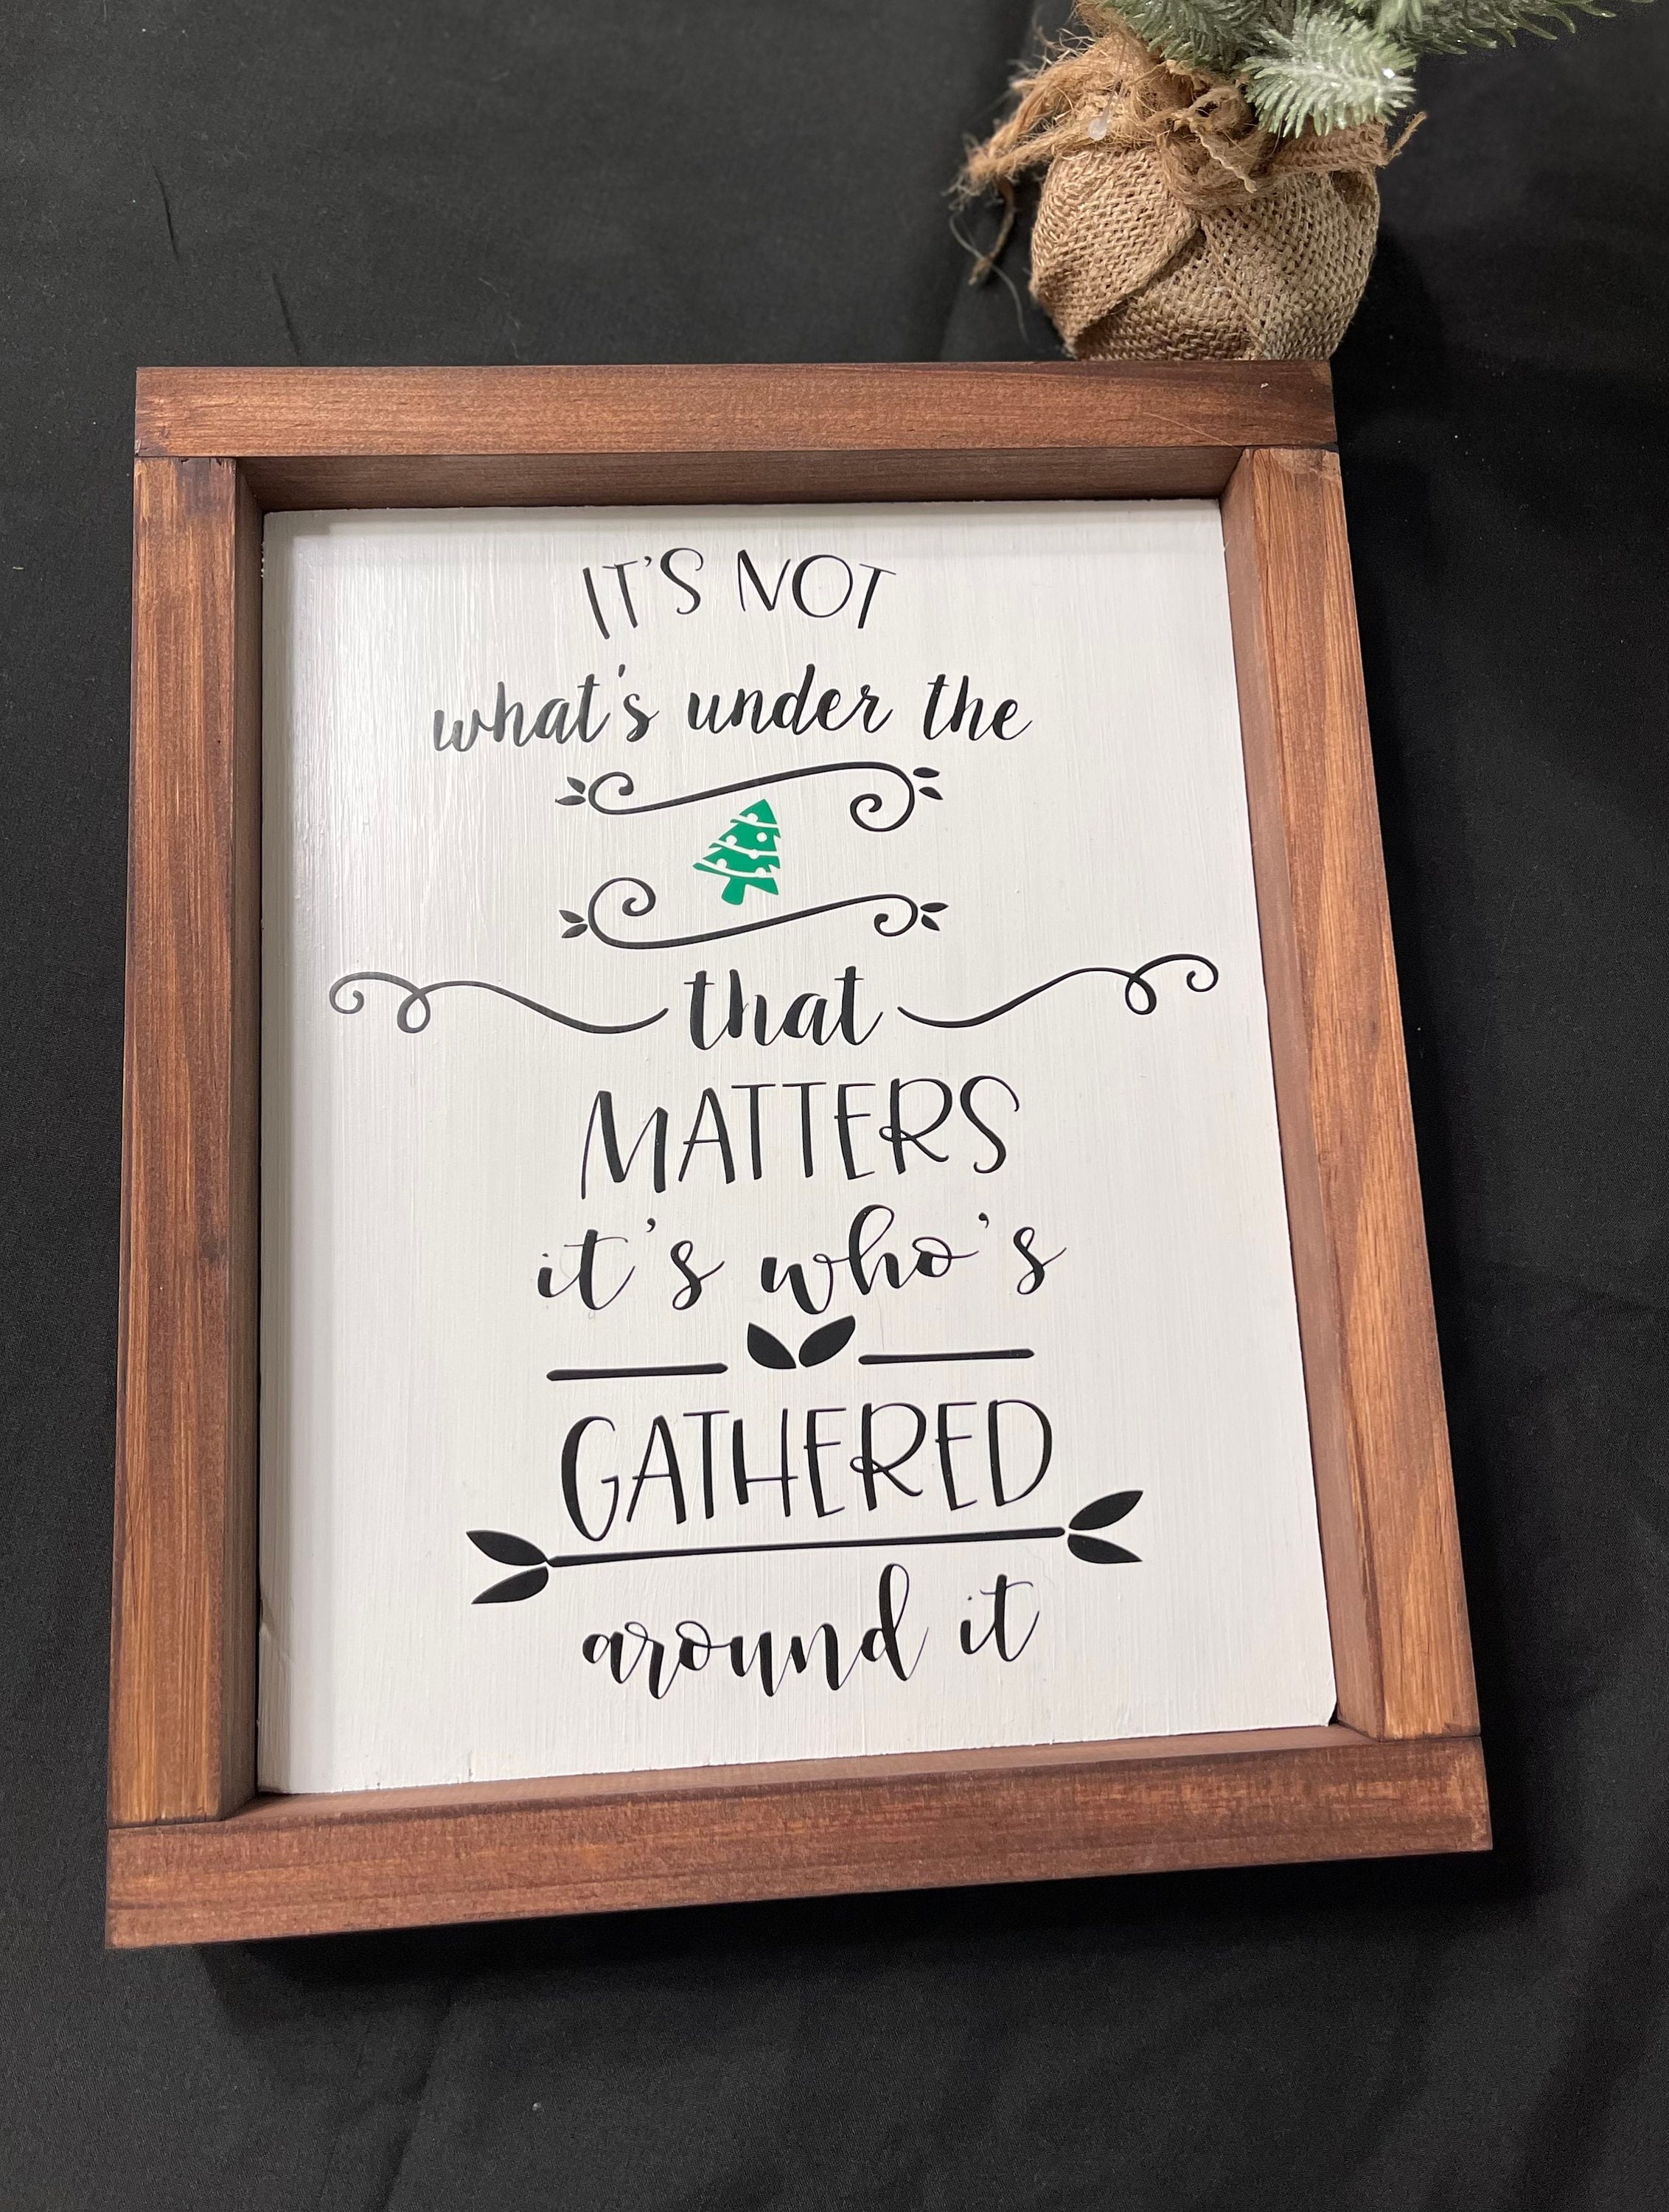 IT'S NOT
what's under the
that
MATTERS
it's who's
GATHERED
around it